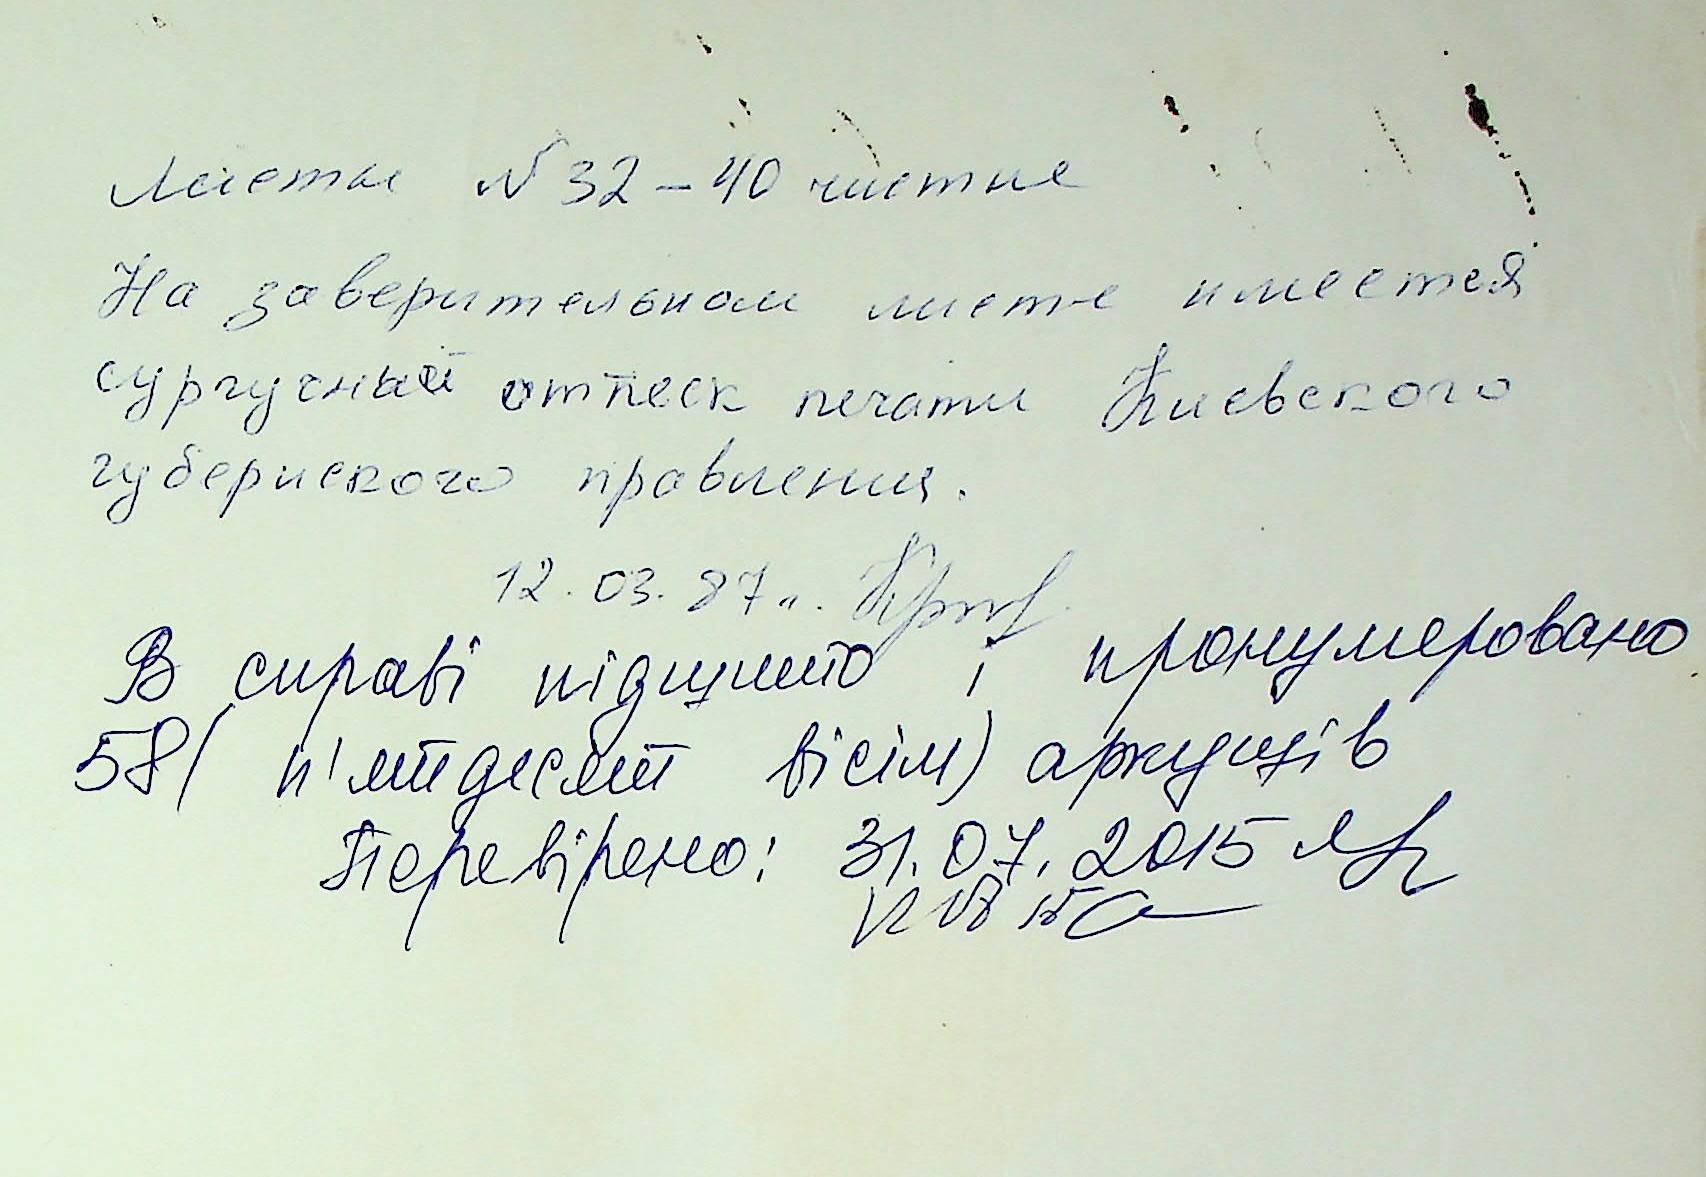 Листы № 32-40 чистые
На заверительном листе имеется
сургучный оттеск печати Киевского
губернского правления.
12.03.87 г.
В справі підшито і пронумеровано
58 (п'ятдесят вісім) аркушів
Перевірено: 31.07.2015